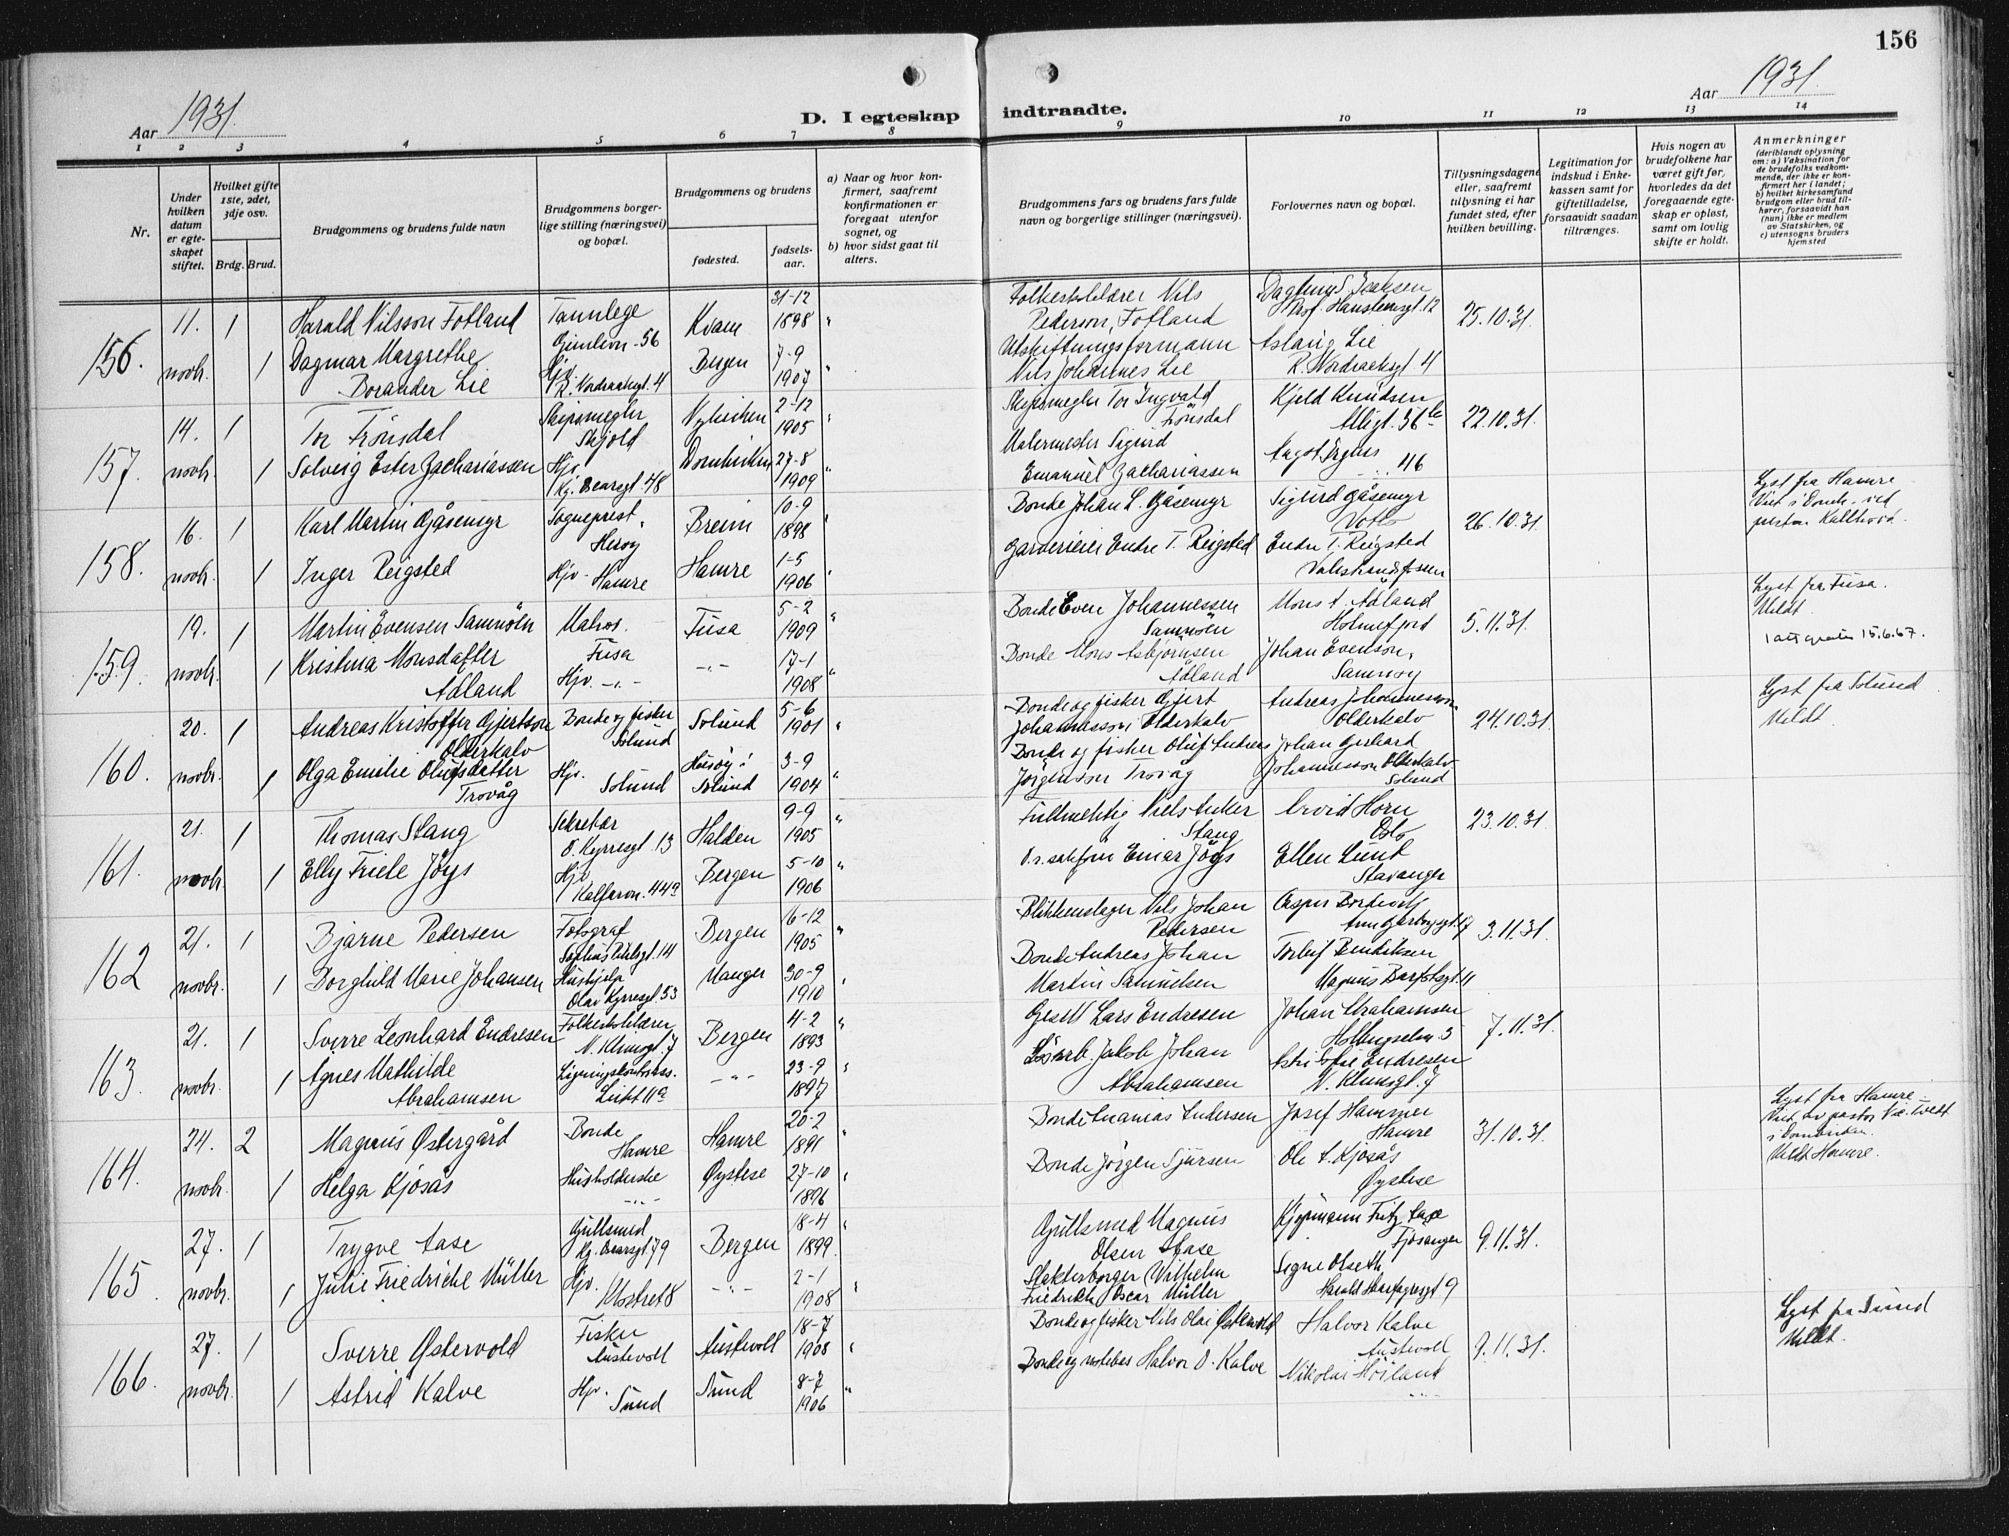 156
Aar 1931.
D. I egteskap indtraadte.
Aar 1931.
1 2 3 4 5 6 7 8 9 10 11 12 13 14
Nr.
Under hvilken datum er egteskapet stiftet.
Hvilket gifte 1ste, 2det, 3dje osv.
Brdg. Brud.
Brudgommens og brudens fulde navn
Brudgommens borgerlige stilling (næringsvei) og bopæl.
Brudgommens og brudens
fødested.
fødselsaar.
a) Naar og hvor konfirmert, saafremt konfirmationen er foregaat utenfor sognet, og
b) hvor sidst gaat til alters.
Brudgommens fars og brudens fars fulde navn og borgerlige stillinger (næringsvei).
Forlovernes navn og bopæl.
Tillysningsdagene eller, saafremt tillysning ei har fundet sted, efter hvilken bevilling.
Legitimation for indskud i Enkekassen samt for giftetilladelse, forsaavidt saadan tiltrænges.
Hvis nogen av brudefolkene har været gift før, hvorledes da det foregaaende egteskap er opløst, samt om lovlig skifte er holdt.
Anmerkninger
(deriblandt oplysning om: a) Vaksination for de brudefolks vedkommende, der ikke er konfirmert her i landet; b) hvilket kirkesamfund brudgom eller brud tilhører, forsaavidt han (hun) ikke er medlem av Statskirken, og c) utensogns bruders hjemsted
156. 11. novbr. 1 Harald Nilsson Fotland Tannlege Gimlevn. 56 Kvam 31-12 1898 " Folkeskolelærer Nils Pederson Fotland Dagny S. Isaksen Prof. Hansteensgt. 12 25.10.31.
1 Dagmar Margrethe Dorander Lie Hjv. R. Nordraaksgt. 4 Bergen 7-9 1907 " Utskiftningsformann Nils Johannes Lie Aslaug Lie R. Nordraaksgt 4
157. 14. novbr. 1 Tor Frönsdal Skipsmegler Skjold 2-12 1905 " Skipsmegler Tor Ingvald Frönsdal Kjeld Knudsen 22.10.31.
1 Solveig Ester Zachariassen Hjv. Kg. Oscarsgt. 48 Domkirken 27-8 1909 " Malermester Sigurd Emanuel Zachariassen 46
158. 16. novbr. 1 Karl Martin Gåsemyr Sogneprest, Herøy Breim 10-9 1898 " Bonde Johan L. Gåsemyr Sigurd Gåsemyr 26.10.31. Lyst fra Hamre
1 Inger Reigsted Hjv. Hamre Hamre 1-5 1906 " Gardeier Endre T. Reigsted Endre T. Reigsted Valestrandsfossen
159. 19. novbr. 1 Martin Evensen Samnöen Matros. Fusa Fusa 5-2 1909 " Bonde Even Johannessen Samnöen Mons A. Ådland Holmefjord 5.11.31. Lyst fra Fusa. Meldt.
1 Kristina Monsdatter Ådland Hjv. -"- -"- 17-1 1908 " Bonde Mons Asbjörnsen Ådland Johan Evenson, Samnøy 1 att gratis 15.6.67.
160. 20. novbr. 1 Andreas Kristoffer Gjertson Olderkalv Bonde og fisker Solund Solund 5-6 1901 " Bonde og fisker Gjert Johannesson Olderkalv Andreas Johannesson Olderkalv 24.10.31. Lyst fra Solund Meldt.
1 Olga Emilie Olufsdatter Trovåg Hjv. Solund Solund 3-9 1904 " Bonde og fisker Oluf Andreas Jörgenson Trovåg Johan Gerhard Johannesson Olderkalv Solund
161. 21. novbr. 1 Thomas Stang Sekretær O. Kyrresgt. 13 Halden 9-9 1905 " Fullmektig Niels Anker Stang Arvid Horn Oslo 23.10.31.
1 Elly Friele Jöys Hjv. Kalfarvn. 44a Bergen 5-10 1906 " O.r. sakfører Einar Jöys Ellen Lund Stavanger
162 21. novbr. 1 Bjarne Pedersen Fotograf Bergen 16-12 1905 " Blikkenslager Nils Johan Pedersen 3.11.31.
1 Borghild Marie Johansen Hushjelp Olav Kyrresgt. 53 Manger 30-9 1910 " Bonde Andreas Johan Martin Samuelsen Torleif Bendiksen Magnus Barfotsgt. 11
163. 21. novbr. 1 Sverre Leonhard Endresen Folkeskolelærer N. Klausgt. 7 Bergen 4-2 1893 " Lars Endresen Johan Abrahamsen 7.11.31.
1 Agnes Mathilde Abrahamsen -"- 23-9 1897 " Jakob Johan Abrahamsen Astri Sofie Endresen N. Klausgt. 7
164. 24. novbr. 2 Magnus Østergård Bonde Hamre Hamre 20-2 1891 " Bonde Ananias Andersen Josef Hammer Hamre 31.10.31. Lyst fra Hamre Meldt Hamre.
1 Helga Kjösås Husholderske -"- Øystese 27-10 1896 " Bonde Jörgen Sjursen Ole A. Kjösås Øystese
165. 27. novbr. 1 Trygve Aase Gullsmed Kg. Oscarsgt. 79 Bergen 18-4 1899. " Gullsmed Magnus Olsen Aase Kjøpmann Fritz Aase Fjösanger 9.11.31.
1 Julie Friedriche Müller Hjv. Klostret 8 -"- 2-1 1908 " Slakterborger Wilhelm Friedrich Oscar Müller Signe Olseth, Harald Hårfagresgt 9
166. 27. novbr. 1 Sverre Østervold Fisker Austevoll Austevoll 18-7 1908 " Bonde og fisker Nils Olai Østervold Halvor Kalve Austevoll 9.11.31. Lyst fra Sund Meldt.
1 Astrid Kalve Hjv. Sund Sund 8-7 1906 " Bonde og notebas Halvor O. Kalve Nikolai Höiland -"-